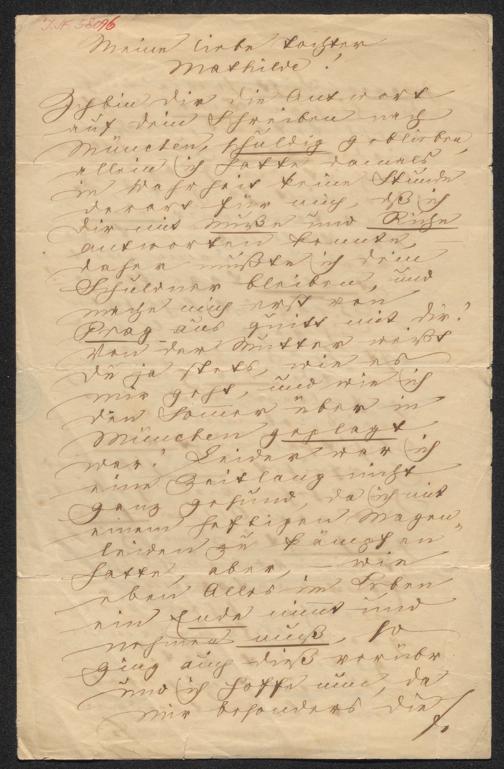 I.N. 58096
Meine liebe Tochter
Mathilde!
Ich bin dir die Antwort
auf dein Schreiben nach
München, schuldig geblieben,
allein ich hatte damals
in Wahrheit keine Stunde
derart für mich, daß ich
dir mit Muße und Ruhe
antworten konnte,
daher mußte ich dein
Schuldner bleiben, und
mache mich erst von
Prag aus quitt mit dir!
Von der Mutter weißt
du ja stets, wie es
mir geht, und wie ich
den Somer über in
München geplagt
war! Leider war ich
eine Zeitlang nicht
ganz gesund, da ich mit
einem heftigen Magen-
leiden zu kämpfen
hatte, aber, wie
eben Alles im Leben
ein Ende nimt und
nehmen muß, so
ging auch dieß vorüber
und ich hoffe nun, da
mir besonders die